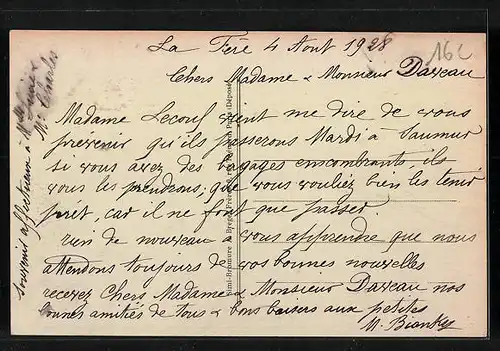 La Fère 4 Aout 1928
16L
Chers Madame & Monsieur Daveau
Madame Lecouf vient me dire de vous
prévenir qu'ils passerons Mardi à Saumur
si vous avez des bagages encombrants, ils
vous les prendrons, que vous vouliez bien les tenir
prêt, car il ne font que passer
rien de nouveau a vous apprendre que nous
attendons toujours de vos bonnes nouvelles
recevez Chers Madame & Monsieur Daveau nos
bonnes amitiés de tous & bons baisers aux petites
M.
Souvenir affectueux à
Mr Charles